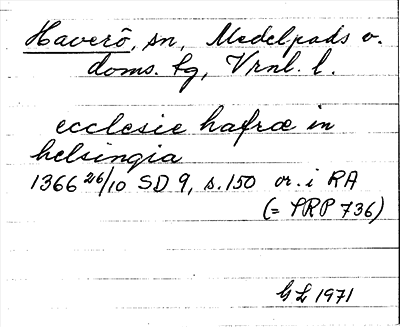 Haverö, sn, Medelpads v.
doms. tg, Vrnl. l.
ecclesie hafræ in
helsingia
1366 26/10 SD 9, s. 150 or. i RA
(= SRP 736)
GL 1971